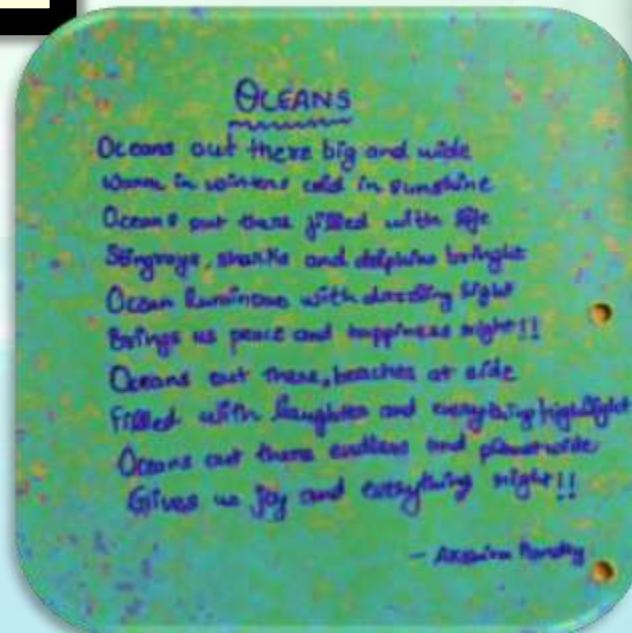 OCEANS
Oceans out there big and wide
Warm in winters cold in sunshine
Oceans out there filled with life
Stingrays, sharks and dolphins bringht
Ocean luminous with dazzling light
Brings us peace and happiness might!!
Oceans out there, beaches at side
Filled with laughter and everything highlight
Oceans out there endless and planetwide
Gives us joy and everything might!!